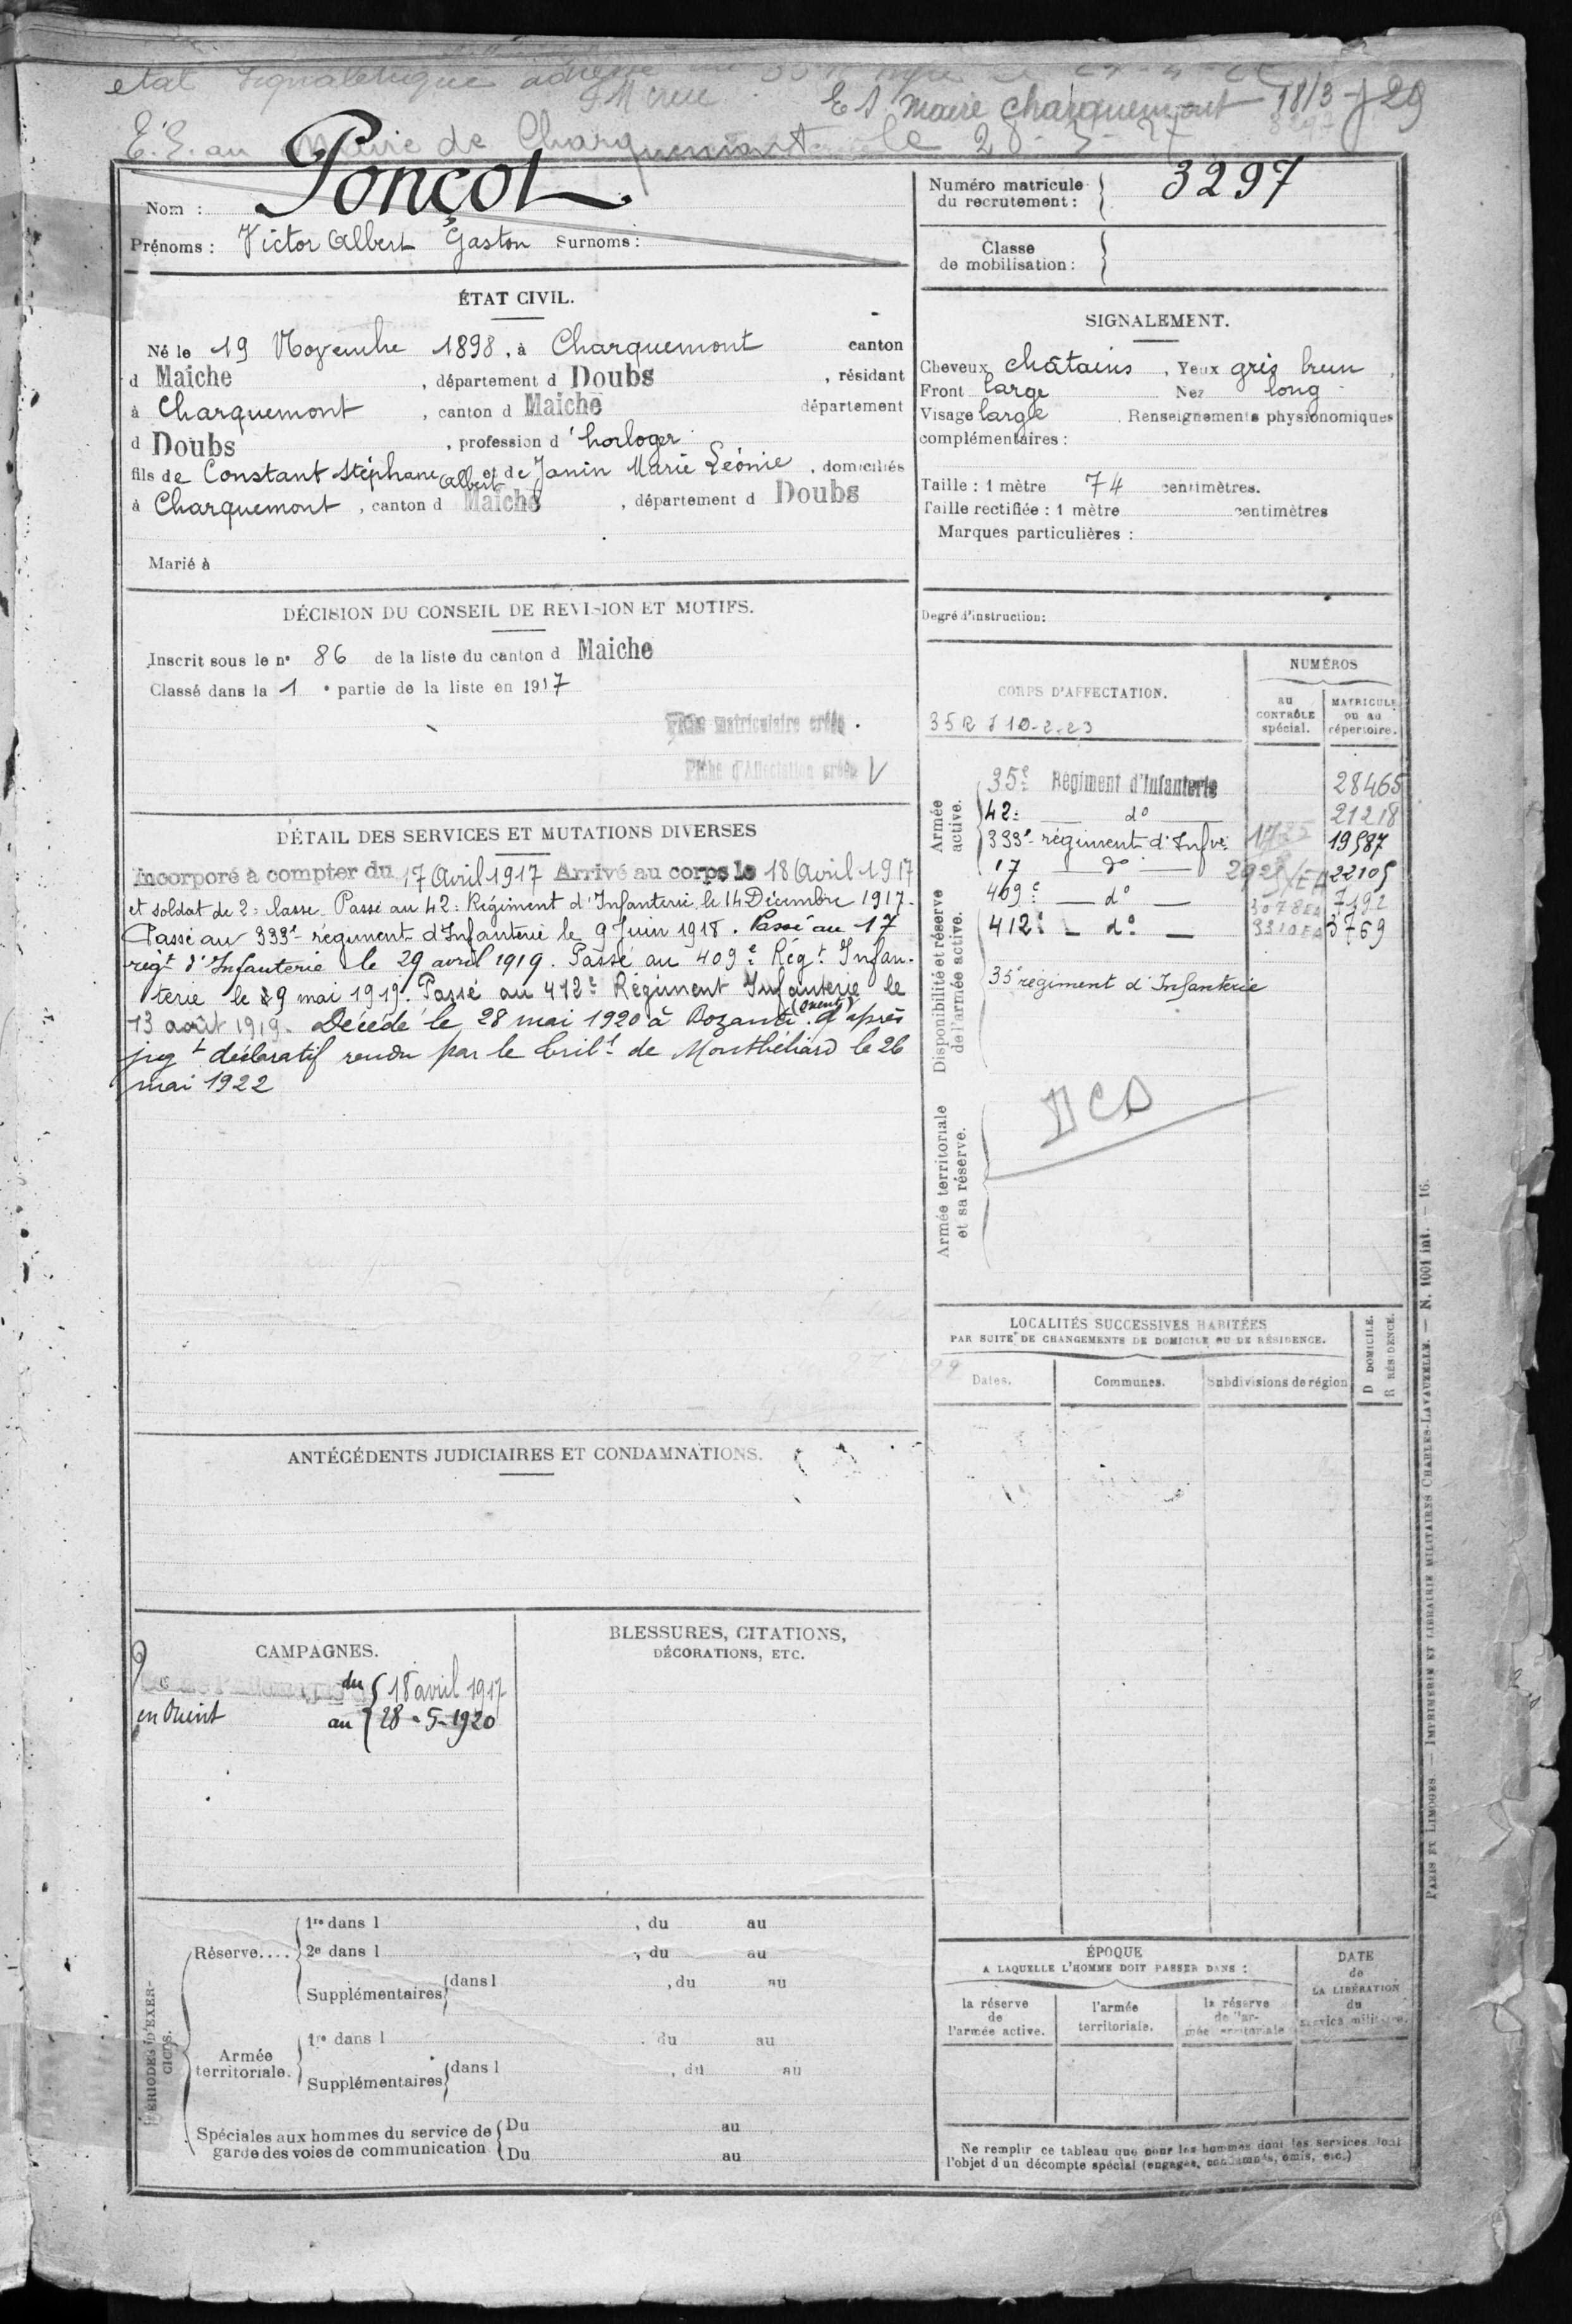 etat signaletique adressé
E S Maire Charquemont 18/3-29
E.S. au Maire de Charquemont le 28-5-27
Nom : Ponçot
Prénoms : Victor Albert Gaston Surnoms :
Numéro matricule du recrutement : 3297
Classe de mobilisation :
ÉTAT CIVIL.
Né le 19 Novembre 1898, à Charquemont canton
d Maiche, département d Doubs, résidant
à Charquemont, canton d Maiche département
d Doubs, profession d'horloger
fils de Constant Stéphane Albert et de Janin Marie Léonie, domiciliés
à Charquemont, canton d Maiche, département d Doubs
Marié à
SIGNALEMENT.
Cheveux châtains, Yeux gris brun,
Front large Nez long
Visage large. Renseignements physionomiques
complémentaires :
Taille : 1 mètre 74 centimètres.
Taille rectifiée : 1 mètre centimètres
Marques particulières :
Degré d'instruction :
DÉCISION DU CONSEIL DE REVISION ET MOTIFS.
Inscrit sous le n° 86 de la liste du canton d Maiche
Classé dans la 1 e partie de la liste en 1917
Fiche matriculaire créée.
Fiche d'Affectation créée V
DÉTAIL DES SERVICES ET MUTATIONS DIVERSES
Incorporé à compter du 17 Avril 1917 Arrivé au corps le 18 Avril 1917
et soldat de 2e classe. Passé au 42e Régiment d'Infanterie le 14 Décembre 1917.
Passé au 333e régiment d'Infanterie le 9 Juin 1918. Passé au 17
régt d'Infanterie le 29 avril 1919. Passé au 409e Régt Infan-
terie le 29 mai 1919. Passé au 412e Régiment Infanterie le
13 août 1919. Décédé le 28 mai 1920 à Bozanti (orient) d'après
jugt déclaratif rendu par le tribl de Montbéliard le 26
mai 1922
CORPS D'AFFECTATION.
NUMÉROS
au CONTRÔLE spécial.
MATRICULE ou au répertoire.
35 R I 10-2-23
Armée active.
35e Régiment d'Infanterie 28465
42e do 21218
333e régiment d'Infie 19587
17 do 22105
Disponibilité et réserve de l'armée active.
409e do 3078 7192
412e do 3310 3769
35e régiment d'Infanterie
Armée territoriale et sa réserve.
DCD
LOCALITÉS SUCCESSIVES HABITÉES
PAR SUITE DE CHANGEMENTS DE DOMICILE OU DE RÉSIDENCE.
Dates. Communes. Subdivisions de région
D DOMICILE.
R RÉSIDENCE.
ANTÉCÉDENTS JUDICIAIRES ET CONDAMNATIONS.
CAMPAGNES.
du 18 avril 1917
en Orient au 28-5-1920
BLESSURES, CITATIONS,
DÉCORATIONS, ETC.
PÉRIODES D'EXERCICES.
Réserve.... 1re dans l , du au
2e dans l , du au
Supplémentaires dans l , du au
Armée territoriale. 1re dans l , du au
Supplémentaires dans l , du au
Spéciales aux hommes du service de garde des voies de communication
Du au
Du au
ÉPOQUE
A LAQUELLE L'HOMME DOIT PASSER DANS :
la réserve de l'armée active.
l'armée territoriale.
la réserve de l'armée territoriale
DATE de LA LIBÉRATION du service militaire.
Ne remplir ce tableau que pour les hommes dont les services font
l'objet d'un décompte spécial (engagés, condamnés, omis, etc.)
PARIS ET LIMOGES. — IMPRIMERIE ET LIBRAIRIE MILITAIRES CHARLES-LAVAUZELLE. — N. 1001 int. — 16.